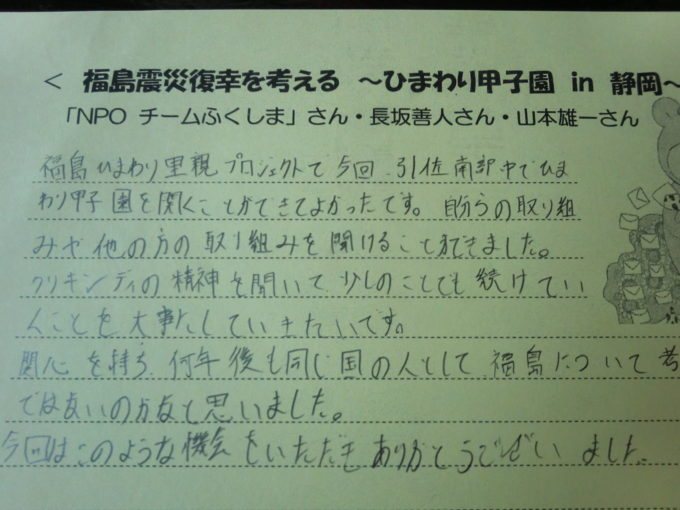 ＜ 福島震災復幸を考える ～ひまわり甲子園 in 静岡～
「NPO チームふくしま」さん・長坂善人さん・山本雄一さん
福島ひまわり里親プロジェクトで今回、引佐南部中でひま
わり甲子園を開くことができてよかったです。自分らの取り組
みや他の方の取り組みを聞けることができました。
クリキンディの精神を聞いて少しのことでも続けてい
くことを大事にしていきたいです。
関心を持ち、何年後も同じ国の人として、福島について考
ではないのかなと思いました。
今回はこのような機会をいただきありがとうございました。